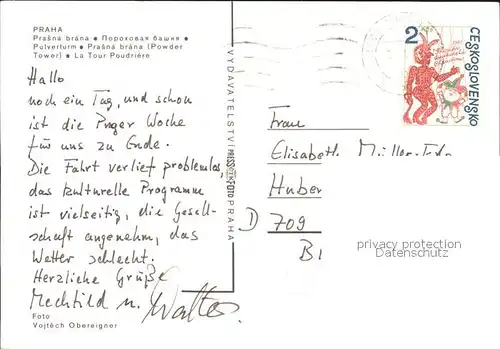 PRAHA
Prašná brána • Пороховая башня •
Pulverturm • Prašná brána (Powder
Tower) • La Tour Poudrière
Hallo
noch ein Tag, und schon
ist die Prager Woche
für uns zu Ende.
Die Fahrt verlief problemlos,
das kulturelle Programm
ist vielseitig, die Gesell-
schaft angenehm, das
Wetter schlecht.
Herzliche Grüße
Mechtild u. Walter
Foto
Vojtěch Obereigner
VYDAVATELSTVÍ PRESSFOTO PRAHA
2
ČESKOSLOVENSKO
Frau
Elisabeth Müller
Huber
D 709
B1
privacy protection
Datenschutz